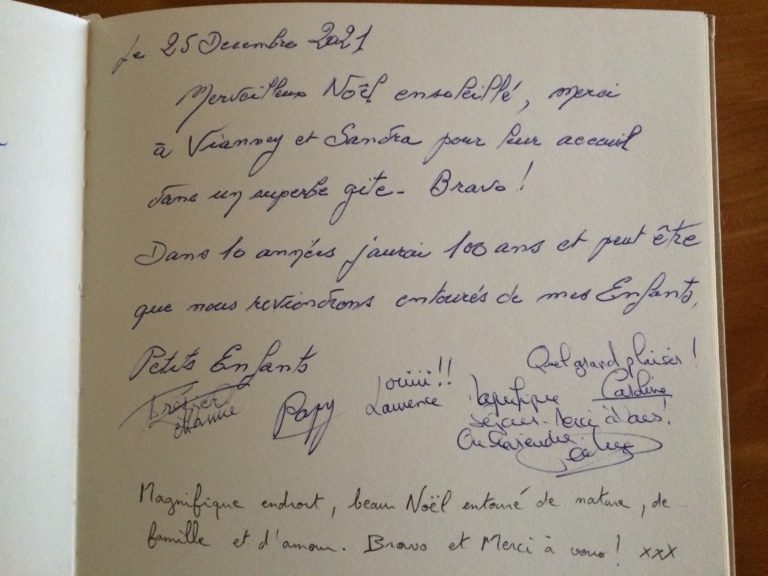 Le 25 Decembre 2021
Merveilleux Noël ensoleillé, merci
à Vianney et Sandra pour leur accueil
dans un superbe gite - Bravo !
Dans 10 années j'aurai 100 ans et peut être
que nous reviendrons entourés de mes Enfants,
Petits Enfants
Quel grand plaisir !
Caroline
ouiiii !!
Laurence
Papy
séjour. Merci à tous !
On reviendra
Magnifique endroit, beau Noël entouré de nature, de
famille et d'amour. Bravo et Merci à vous ! xxx